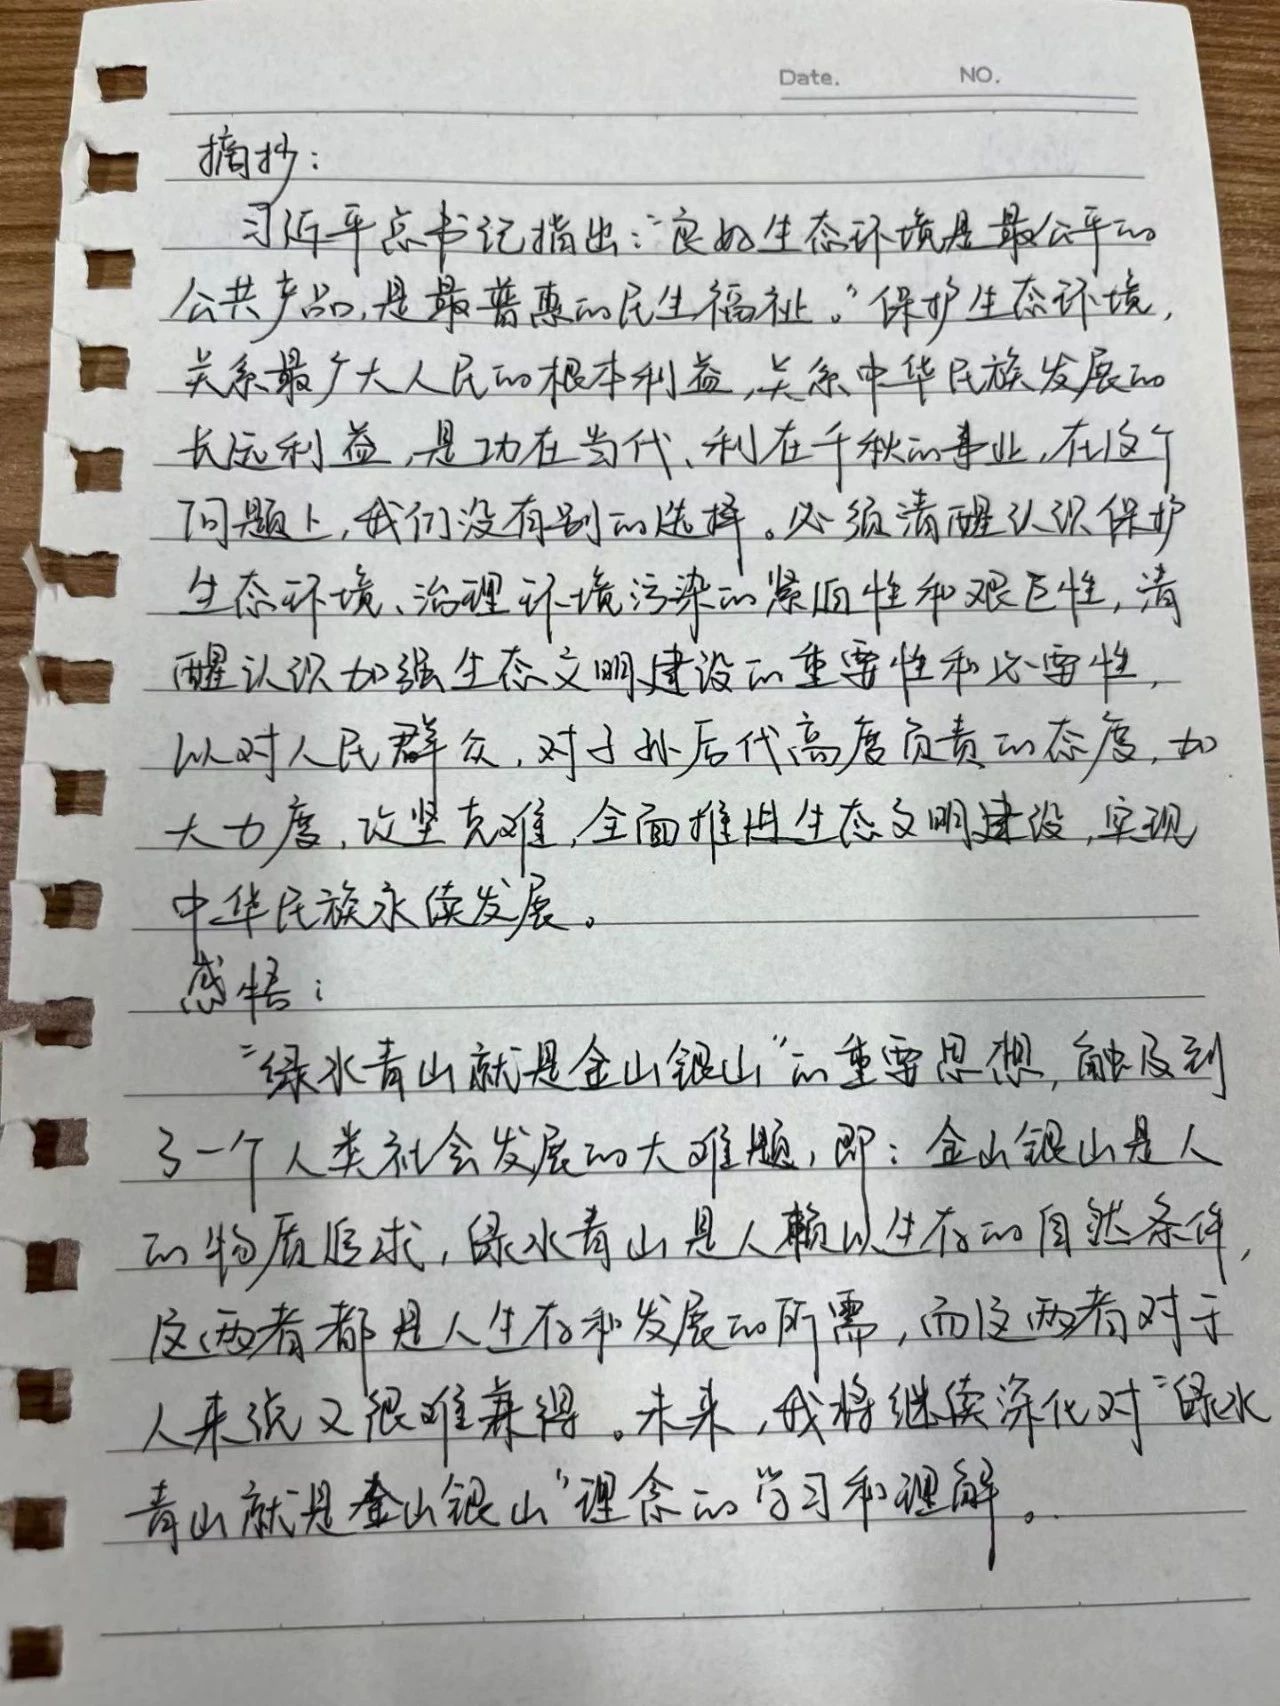 Date.    NO.
摘抄：
习近平总书记指出：“良好生态环境是最公平的
公共产品，是最普惠的民生福祉。”保护生态环境，
关系最广大人民的根本利益，关系中华民族发展的
长远利益，是功在当代、利在千秋的事业，在这个
问题上，我们没有别的选择。必须清醒认识保护
生态环境、治理环境污染的紧迫性和艰巨性，清
醒认识加强生态文明建设的重要性和必要性，
以对人民群众，对子孙后代高度负责的态度，加
大力度，攻坚克难，全面推进生态文明建设，实现
中华民族永续发展。
感悟：
“绿水青山就是金山银山”的重要思想，触及到
了一个人类社会发展的大难题，即：金山银山是人
的物质追求，绿水青山是人赖以生存的自然条件，
这两者都是人生存和发展的所需，而这两者对于
人来说又很难兼得。未来，我将继续深化对“绿水
青山就是金山银山”理念的学习和理解。